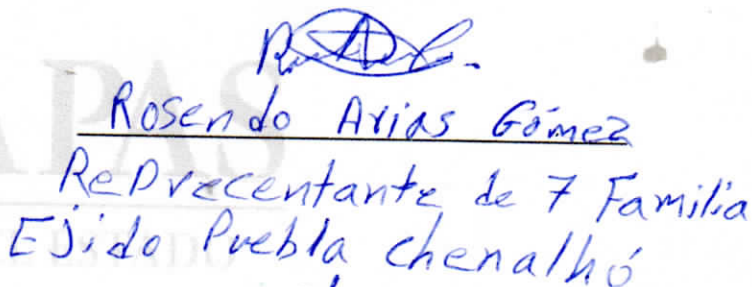 Rosendo Arias Gómez
Reprecentante de 7 Familia
Ejido Puebla chenalhó